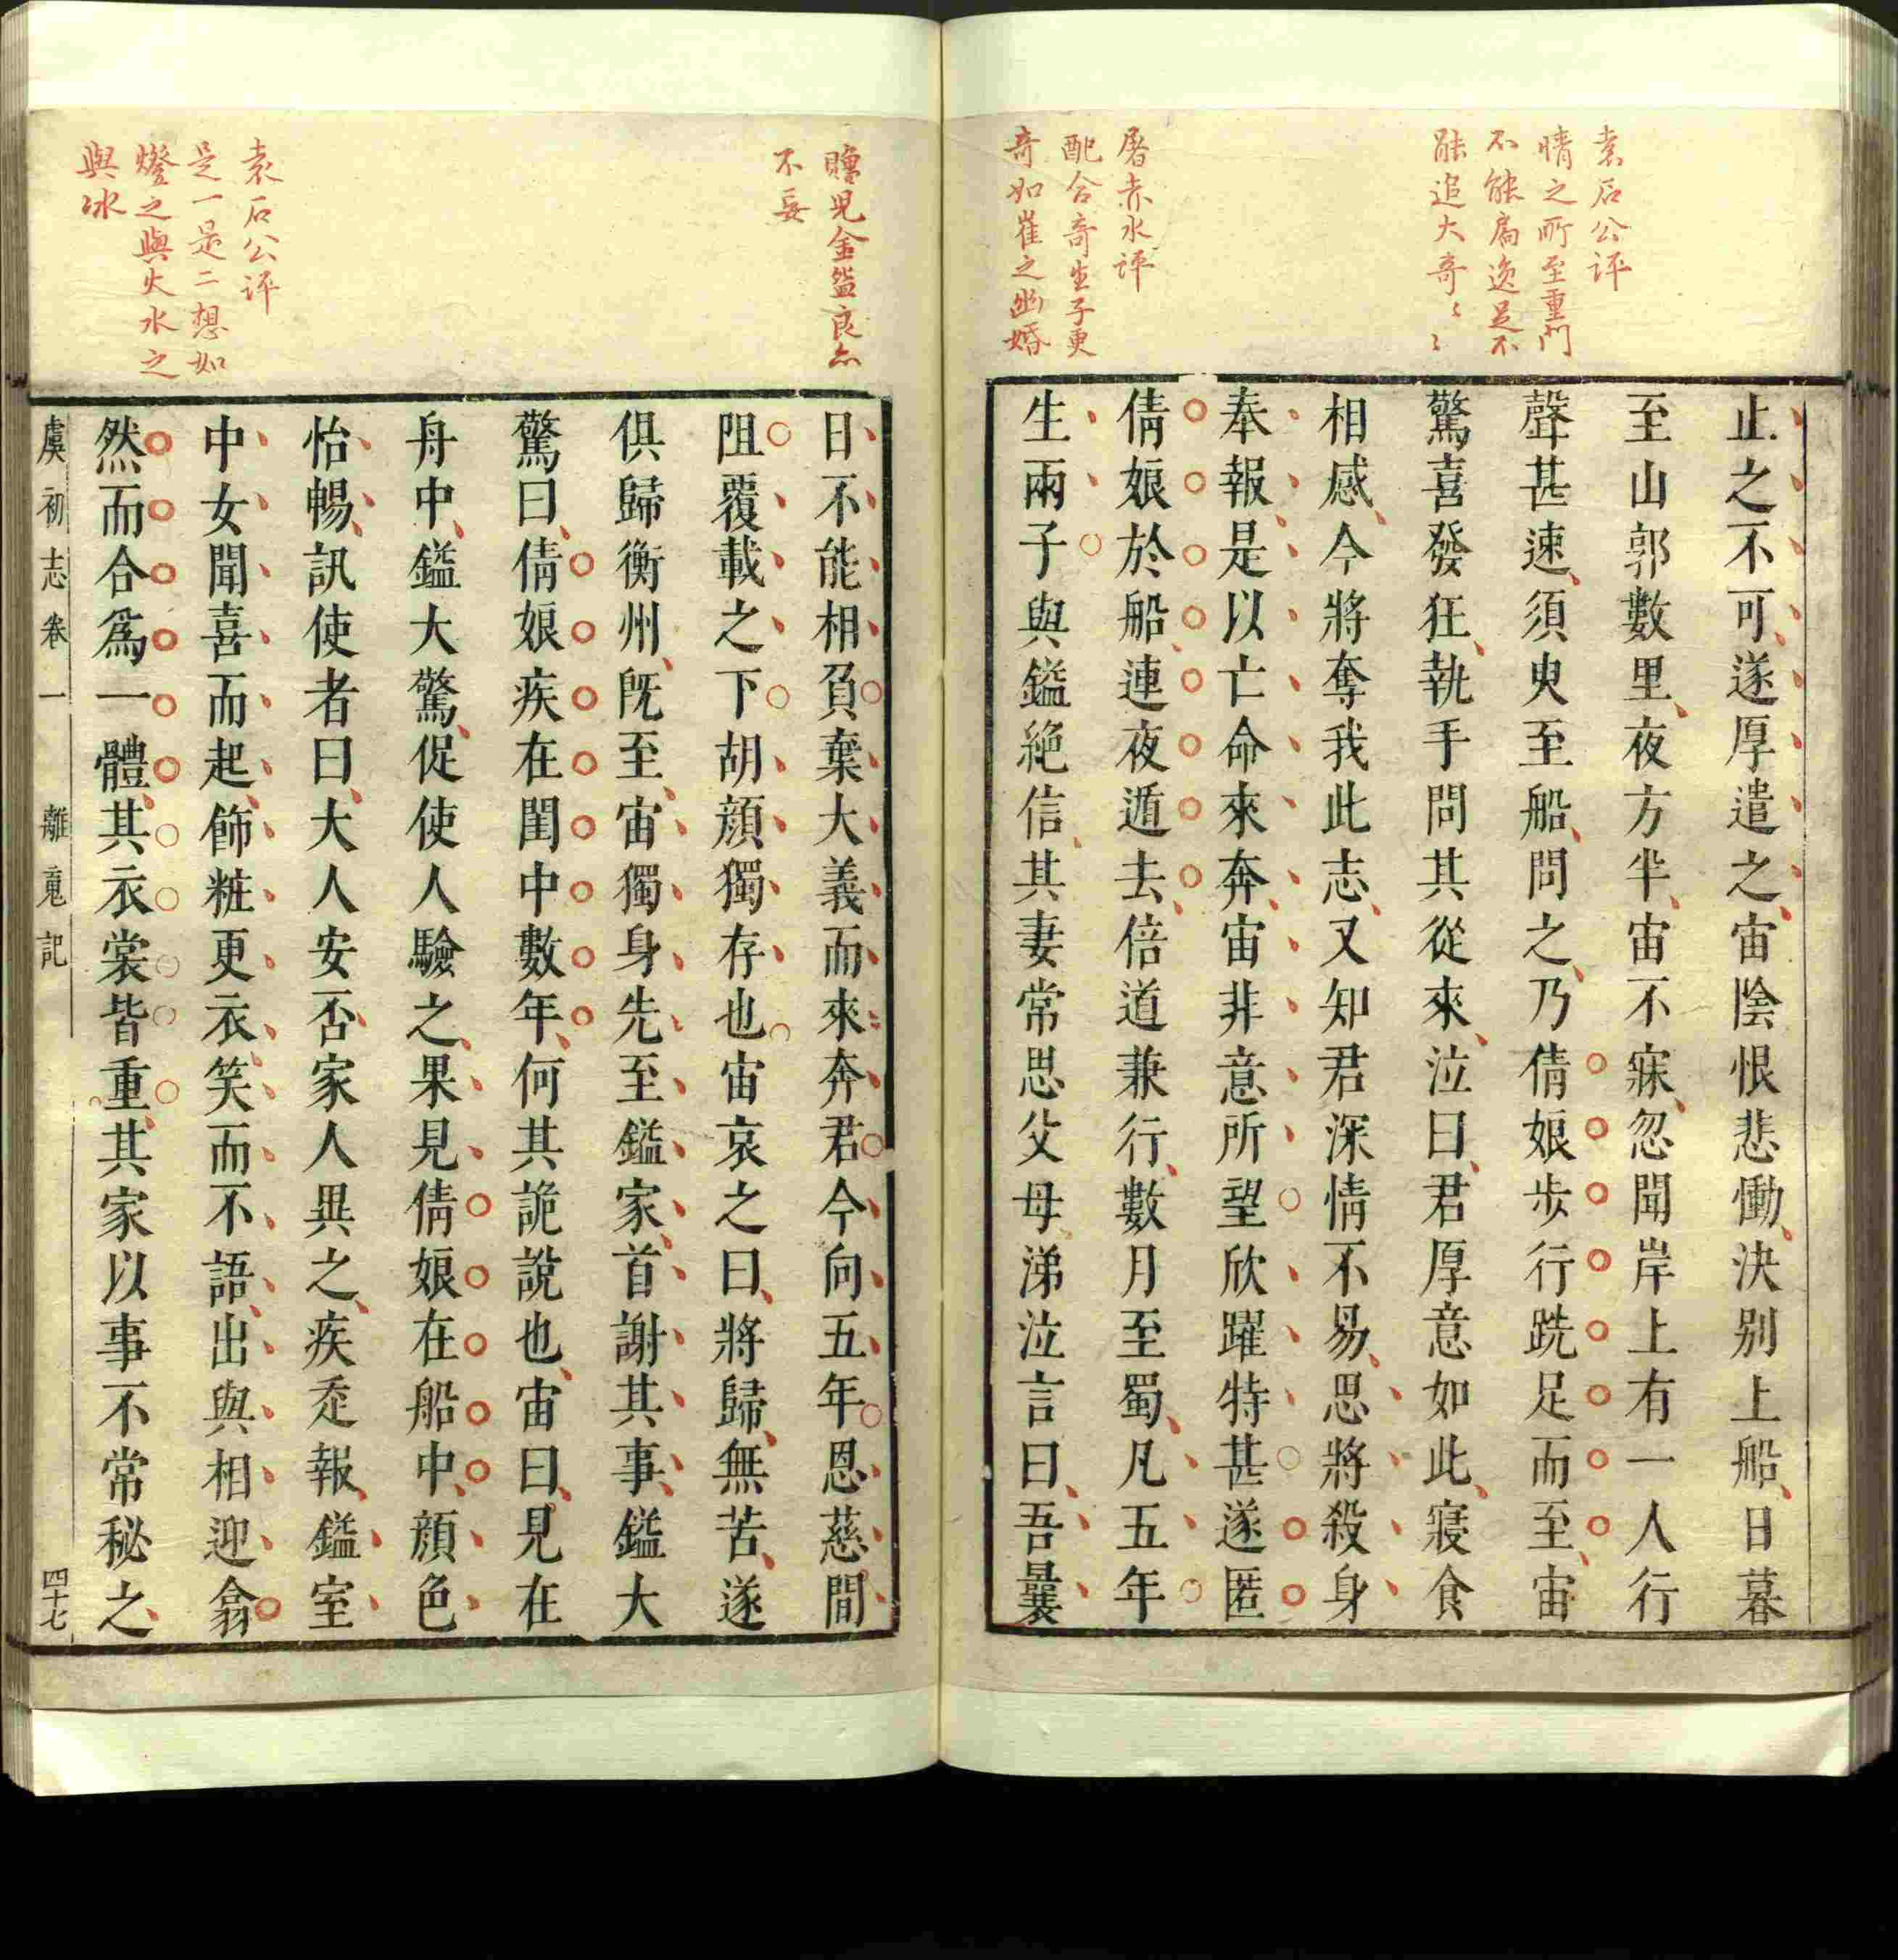 袁石公評
情之所至重門
不能扃逸足不
能追大奇〻〻
屠赤水評
配合奇生子更
奇如崔之幽婚
止之不可遂厚遣之宙陰恨悲慟決別上船日暮
至山郭數里夜方半宙不寐忽聞岸上有一人行
聲甚速須臾至船問之乃倩娘步行跣足而至宙
驚喜發狂執手問其從來泣曰君厚意如此寢食
相感今將奪我此志又知君深情不易思將殺身
奉報是以亡命來奔宙非意所望欣躍特甚遂匿
倩娘於船連夜遁去倍道兼行數月至蜀凡五年
生兩子與鎰絶信其妻常思父母涕泣言曰吾曩
見金盌良
不妥
袁石公評
是一是二想如
燈之與火水之
與冰
日不能相負棄大義而來奔君今向五年恩慈間
阻覆載之下胡顔獨存也宙哀之曰將歸無苦遂
俱歸衡州既至宙獨身先至鎰家首謝其事鎰大
驚曰倩娘疾在閨中數年何其詭說也宙曰見在
舟中鎰大驚促使人驗之果見倩娘在船中顔色
怡暢訊使者曰大人安否家人異之疾走報鎰室
中女聞喜而起飾粧更衣笑而不語出與相迎翕
然而合爲一體其衣裳皆重其家以事不常秘之
虞初志卷一 離䰟記 四十七